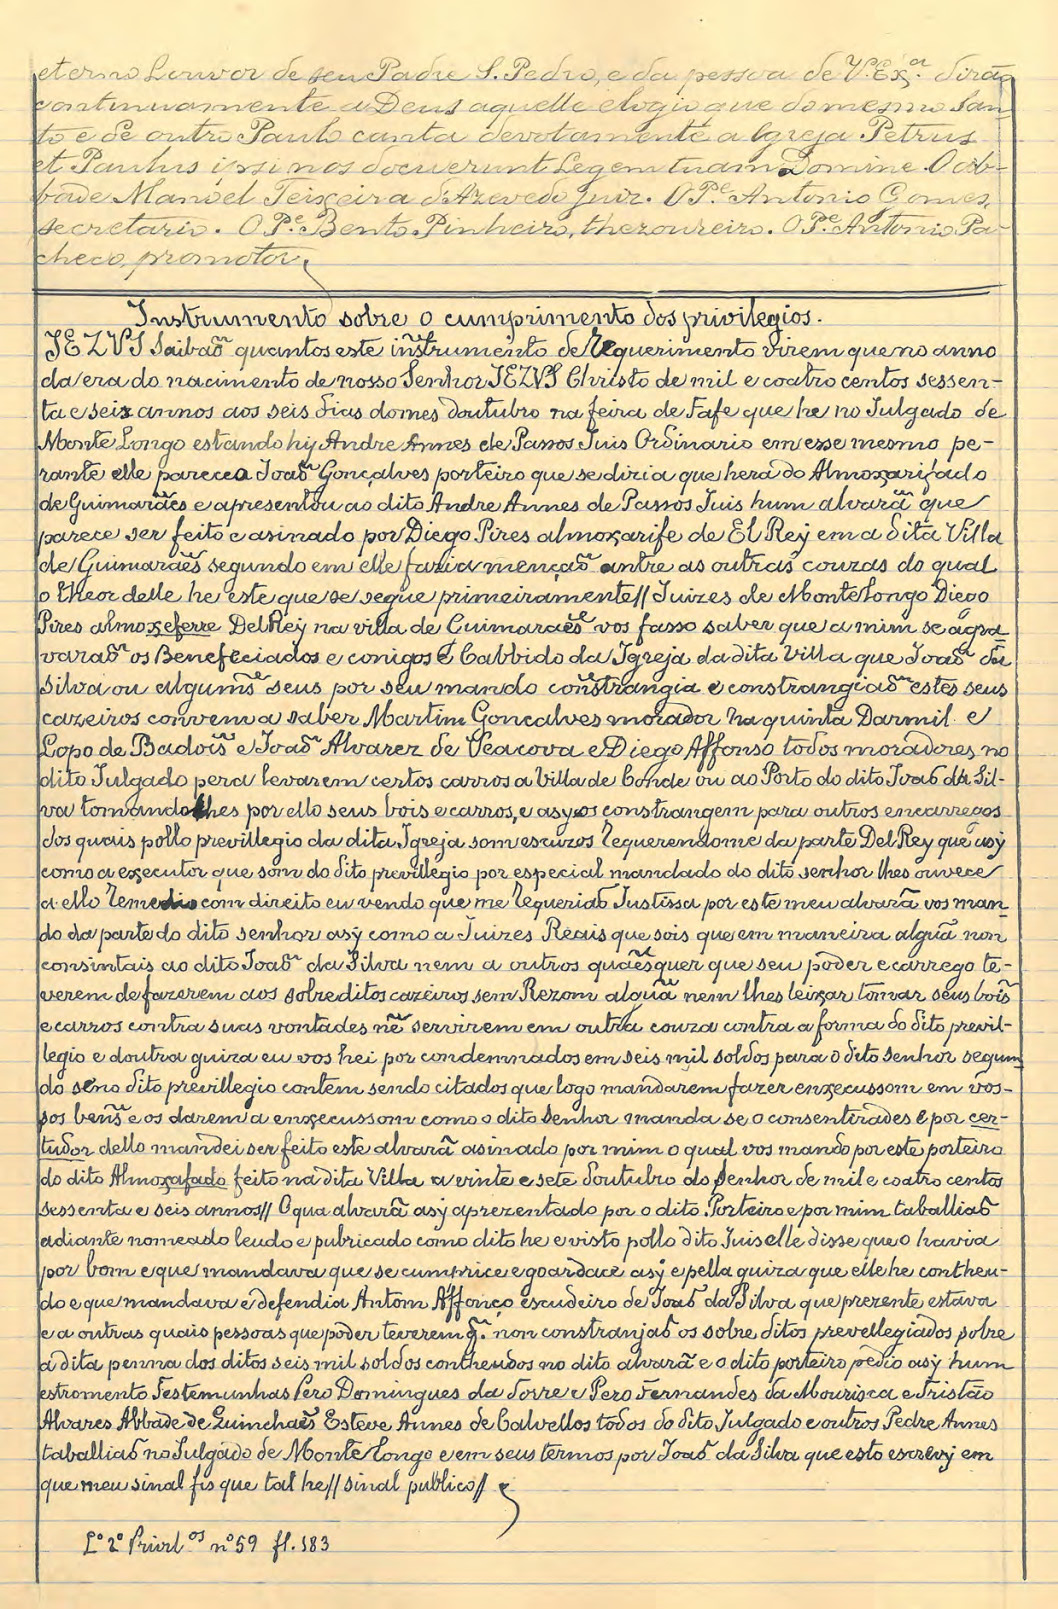 eterno Louvor de seu Padre S. Pedro, e da pessoa de V. Exª. dirão
continuamente a Deus aquelle elogio que do mesmo San-
to e de outro Paulo canta devotamente a Igreja Petrus
et Paulus ipsi nos docuerunt Legem tuam Domine. O Ab-
bade Manoel Teixeira d'Azevedo Juiz. O Pe. Antonio Gomes,
secretario. O Pe. Bento Pinheiro, thezoureiro. O Pe. Antonio Pa-
checo, promotor.
Instrumento sobre o cumprimento dos privilegios.
JEZVS Saibaõ quantos este instrumento de Requerimento virem que no anno
da era do nacimento de nosso Senhor JEZVS Christo de mil e coatro centos sessen-
ta e seis annos aos seis dias do mes doutubro na feira de Fafe que he no Julgado de
Monte Longo estando hy Andre Annes de Passos Juis Ordinario em esse mesmo pe-
rante elle pareceo Joaõ Gonçalves porteiro que se dizia que hera do Almoxarifado
de Guimarães e apresentou ao dito Andre Annes de Passos Juis hum alvarã que
parece ser feito e asinado por Diego Pires almoxarife de El Rey em a dita Villa
de Guimarães segundo em elle fazia mençaõ antre as outras couzas do qual
o theor delle he este que se segue primeiramente// Juizes de Monte Longo Diego
Pires almoxeferre Del Rey na villa de Guimarães vos fasso saber que a mim se agra
varaõ os Benefeciados e conigos e Cabbido da Igreja da dita Villa que Joaõ da
Silva ou alguns seus por seu mando constrangia e constrangiaõ estes seus
cazeiros convem a saber Martim Goncalves morador na quinta Darmil e
Lopo de Badois e Joaõ Alvarez de Veacova e Diego Affonso todos moradores no
dito Julgado pera levarem certos carros a Villa de Conde ou ao Porto do dito Joaõ da Sil-
va tomandolhes por ello seus bois e carros, e asy os constrangem para outros encarregos
dos quais pollo previllegio da dita Igreja som escuzos requerendome da parte Del Rey que asy
como a executor que som do dito previllegio por especial mandado do dito senhor lhes ouvece
a ello remedio com direito eu vendo que me requeriaõ Justissa por este meu alvarã vos man-
do da parte do dito senhor asy como a Juizes Reais que sois que em maneira algũa non
consintais ao dito Joaõ da Silva nem a outros quaesquer que seu poder e carrego te-
verem de fazerem aos sobreditos cazeiros sem Rezom algũa nem lhes leixar tomar seus bois
e carros contra suas vontades nẽ servirem em outra couza contra a forma do dito previl-
legio e doutra guiza eu vos hei por condemnados em seis mil soldos para o dito senhor segun
do se no dito previllegio contem sendo citados que logo mandarem fazer enxecussom em vos-
sos bens e os darem a enxecussom como o dito Senhor manda se o consentirades e por cer-
tudor dello mandei ser feito este alvarã asinado por mim o qual vos mando por este porteiro
do dito Almoxafado feito na dita Villa a vinte e sete doutubro do Senhor de mil e coatro centos
sessenta e seis annos// O qua alvarã asy aprezentado por o dito Porteiro e por mim taballiaõ
adiante nomeado leudo e pubricado como dito he e visto pollo dito Juis elle disse que o havia
por bom e que mandava que se cumprice e goardace asy e pella guiza que elle he contheu-
do e que mandava e defendia Antom Affonço escudeiro de Joaõ da Silva que prezente estava
e a outras quais pessoas que poder teverem q̃. non constranjaõ os sobre ditos prevellegiados sobre
a dita penna dos ditos seis mil soldos contheudos no dito alvarã e o dito porteiro pedio asy hum
estromento Testemunhas Pero Domingues da Torre e Pero Fernandes da Mourisca e Tristão
Alvares Abbade de Quinchaẽs Esteve Annes de Calvellos todos do dito Julgado e outros Pedre Annes
taballiaõ no Julgado de Monte Longo e em seus termos por Joaõ da Silva que esto escrevy em
que meu sinal fis que tal he// sinal publico//
Lº 2º Privilos nº 59 fl. 183